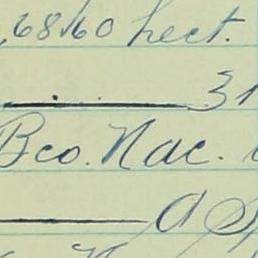 ,6860 hect.
31
Bco. Nac.
a